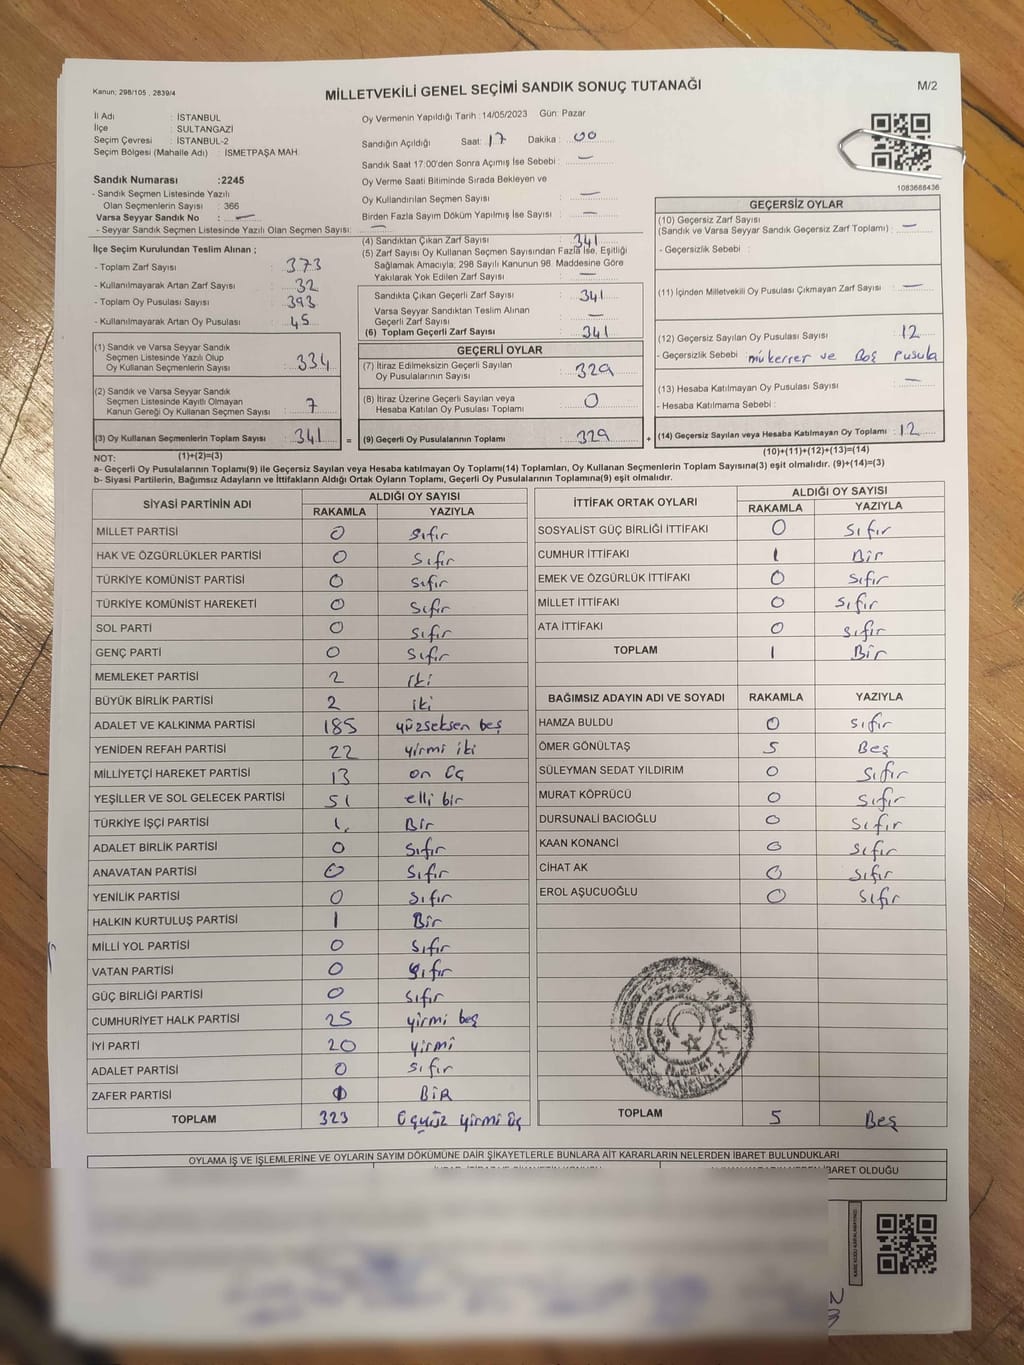 Kanun; 298/105 , 2839/4
MİLLETVEKİLİ GENEL SEÇİMİ SANDIK SONUÇ TUTANAĞI
M/2
İl Adı : İSTANBUL
İlçe : SULTANGAZİ
Seçim Çevresi : İSTANBUL-2
Seçim Bölgesi (Mahalle Adı) : İSMETPAŞA MAH.
Sandık Numarası :2245
- Sandık Seçmen Listesinde Yazılı
Olan Seçmenlerin Sayısı : 366
Varsa Seyyar Sandık No : —
- Seyyar Sandık Seçmen Listesinde Yazılı Olan Seçmen Sayısı: —
Oy Vermenin Yapıldığı Tarih :14/05/2023 Gün: Pazar
Sandığın Açıldığı Saat: 17 Dakika : 00
Sandık Saat 17:00'den Sonra Açımış İse Sebebi : —
Oy Verme Saati Bitiminde Sırada Bekleyen ve
Oy Kullandırılan Seçmen Sayısı : —
Birden Fazla Sayım Döküm Yapılmış İse Sayısı : —
1083688436
İlçe Seçim Kurulundan Teslim Alınan ;
- Toplam Zarf Sayısı : 373
- Kullanılmayarak Artan Zarf Sayısı : 32
- Toplam Oy Pusulası Sayısı : 393
- Kullanılmayarak Artan Oy Pusulası : 45
(1) Sandık ve Varsa Seyyar Sandık
Seçmen Listesinde Yazılı Olup
Oy Kullanan Seçmenlerin Sayısı : 334
(2) Sandık ve Varsa Seyyar Sandık
Seçmen Listesinde Kayıtlı Olmayan
Kanun Gereği Oy Kullanan Seçmen Sayısı : 7
(3) Oy Kullanan Seçmenlerin Toplam Sayısı : 341 =
(4) Sandıktan Çıkan Zarf Sayısı : 341
(5) Zarf Sayısı Oy Kullanan Seçmen Sayısından Fazla İse, Eşitliği
Sağlamak Amacıyla; 298 Sayılı Kanunun 98. Maddesine Göre
Yakılarak Yok Edilen Zarf Sayısı : —
Sandıkta Çıkan Geçerli Zarf Sayısı : 341
Varsa Seyyar Sandıktan Teslim Alınan
Geçerli Zarf Sayısı : —
(6) Toplam Geçerli Zarf Sayısı : 341
GEÇERLİ OYLAR
(7) İtiraz Edilmeksizin Geçerli Sayılan
Oy Pusulalarının Sayısı : 329
(8) İtiraz Üzerine Geçerli Sayılan veya
Hesaba Katılan Oy Pusulası Toplamı : 0
(9) Geçerli Oy Pusulalarının Toplamı : 329 +
GEÇERSİZ OYLAR
(10) Geçersiz Zarf Sayısı
(Sandık ve Varsa Seyyar Sandık Geçersiz Zarf Toplamı) : —
- Geçersizlik Sebebi :
(11) İçinden Milletvekili Oy Pusulası Çıkmayan Zarf Sayısı : —
(12) Geçersiz Sayılan Oy Pusulası Sayısı : 12
- Geçersizlik Sebebi : mükerrer ve Boş pusula
(13) Hesaba Katılmayan Oy Pusulası Sayısı : —
- Hesaba Katılmama Sebebi :
(14) Geçersiz Sayılan veya Hesaba Katılmayan Oy Toplamı : 12
NOT: (1)+(2)=(3)
(10)+(11)+(12)+(13)=(14)
a- Geçerli Oy Pusulalarının Toplamı(9) ile Geçersiz Sayılan veya Hesaba katılmayan Oy Toplamı(14) Toplamları, Oy Kullanan Seçmenlerin Toplam Sayısına(3) eşit olmalıdır. (9)+(14)=(3)
b- Siyasi Partilerin, Bağımsız Adayların ve İttifakların Aldığı Ortak Oyların Toplamı, Geçerli Oy Pusulalarının Toplamına(9) eşit olmalıdır.
SİYASİ PARTİNİN ADI ALDIĞI OY SAYISI
RAKAMLA YAZIYLA
MİLLET PARTİSİ 0 Sıfır
HAK VE ÖZGÜRLÜKLER PARTİSİ 0 Sıfır
TÜRKİYE KOMÜNİST PARTİSİ 0 Sıfır
TÜRKİYE KOMÜNİST HAREKETİ 0 Sıfır
SOL PARTİ 0 Sıfır
GENÇ PARTİ 0 Sıfır
MEMLEKET PARTİSİ 2 iki
BÜYÜK BİRLİK PARTİSİ 2 iki
ADALET VE KALKINMA PARTİSİ 185 yüzseksen beş
YENİDEN REFAH PARTİSİ 22 yirmi iki
MİLLİYETÇİ HAREKET PARTİSİ 13 on üç
YEŞİLLER VE SOL GELECEK PARTİSİ 51 elli bir
TÜRKİYE İŞÇİ PARTİSİ 1 Bir
ADALET BİRLİK PARTİSİ 0 Sıfır
ANAVATAN PARTİSİ 0 Sıfır
YENİLİK PARTİSİ 0 Sıfır
HALKIN KURTULUŞ PARTİSİ 1 Bir
MİLLİ YOL PARTİSİ 0 Sıfır
VATAN PARTİSİ 0 Sıfır
GÜÇ BİRLİĞİ PARTİSİ 0 Sıfır
CUMHURİYET HALK PARTİSİ 25 yirmi beş
İYİ PARTİ 20 yirmi
ADALET PARTİSİ 0 Sıfır
ZAFER PARTİSİ 1 BİR
TOPLAM 323 Üçyüz yirmi üç
İTTİFAK ORTAK OYLARI ALDIĞI OY SAYISI
RAKAMLA YAZIYLA
SOSYALİST GÜÇ BİRLİĞİ İTTİFAKI 0 Sıfır
CUMHUR İTTİFAKI 1 Bir
EMEK VE ÖZGÜRLÜK İTTİFAKI 0 Sıfır
MİLLET İTTİFAKI 0 Sıfır
ATA İTTİFAKI 0 Sıfır
TOPLAM 1 Bir
BAĞIMSIZ ADAYIN ADI VE SOYADI RAKAMLA YAZIYLA
HAMZA BULDU 0 Sıfır
ÖMER GÖNÜLTAŞ 5 Beş
SÜLEYMAN SEDAT YILDIRIM 0 Sıfır
MURAT KÖPRÜCÜ 0 Sıfır
DURSUNALİ BACIOĞLU 0 Sıfır
KAAN KONANCİ 0 Sıfır
CİHAT AK 0 Sıfır
EROL AŞUCUOĞLU 0 Sıfır
TOPLAM 5 Beş
OYLAMA İŞ VE İŞLEMLERİNE VE OYLARIN SAYIM DÖKÜMÜNE DAİR ŞİKAYETLERLE BUNLARA AİT KARARLARIN NELERDEN İBARET BULUNDUKLARI
İBARET OLDUĞU